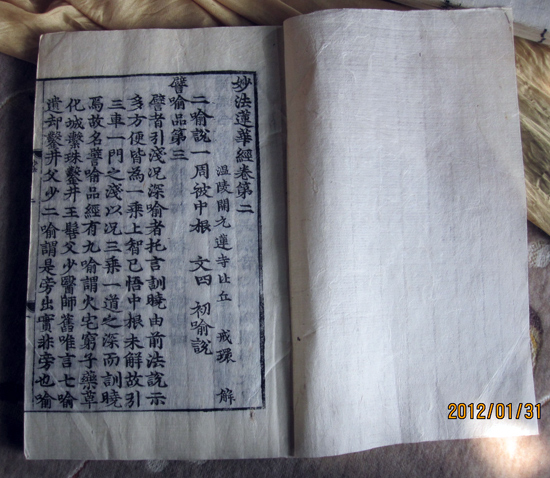 妙法蓮華經卷第二
溫陵開元蓮寺比丘 戒環 解
二喻說一周被中根 文四 初喻說
譬喻品第三
譬者引淺況深喻者托言訓曉由前法說示
多方便皆為一乘上智已悟中根未解故引
三車一門之淺以況三乘一道之深而訓曉
焉故名譬喻品經有九喻謂火宅窮子藥草
化城繫珠鑿井王髻父少醫師舊唯言七喻
遺却鑿井父少二喻謂是旁出實非旁也喻
2012/01/31